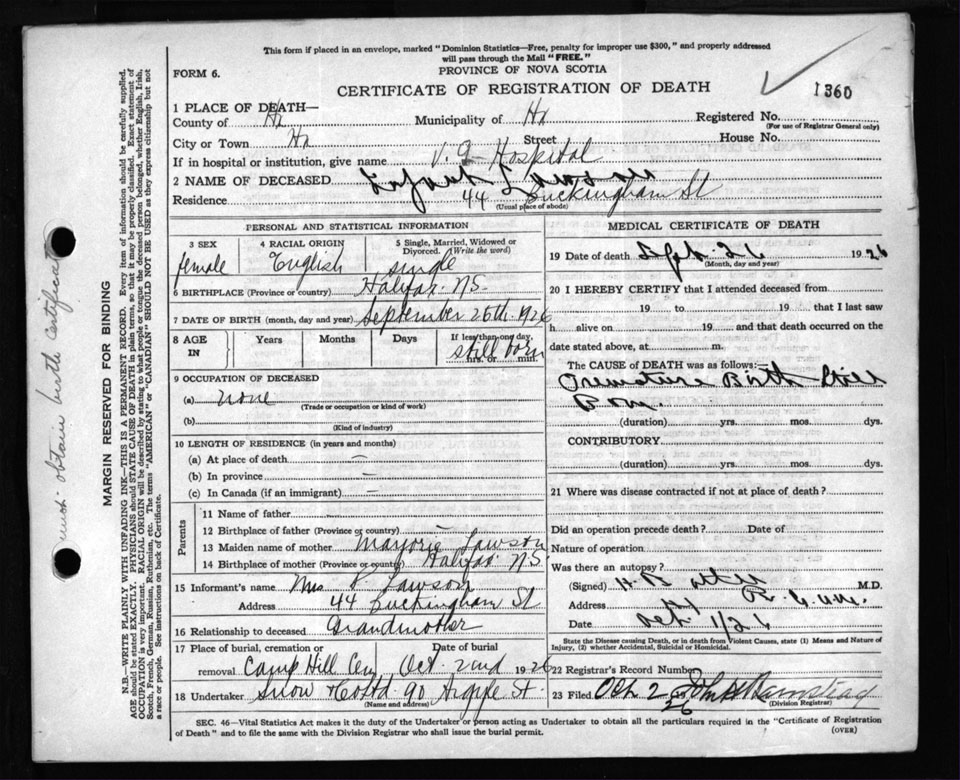 This form if placed in an envelope, marked "Dominion Statistics—Free, penalty for improper use $300," and properly addressed
will pass through the Mail "FREE."
FORM 6.
PROVINCE OF NOVA SCOTIA
CERTIFICATE OF REGISTRATION OF DEATH
1360
1 PLACE OF DEATH—
County of Hx Municipality of Hx Registered No.
(For use of Registrar General only)
City or Town Hx Street House No.
If in hospital or institution, give name V. G Hospital
2 NAME OF DECEASED Infant Lawson
Residence 44 Buckingham St
(Usual place of abode)
PERSONAL AND STATISTICAL INFORMATION
3 SEX 4 RACIAL ORIGIN 5 Single, Married, Widowed or Divorced. (Write the word)
female English single
6 BIRTHPLACE (Province or country) Halifax N.S.
7 DATE OF BIRTH (month, day and year) September 26th 1926
8 AGE IN Years Months Days If less than one day, hrs. or min.
still born
9 OCCUPATION OF DECEASED
(a) none
(Trade or occupation or kind of work)
(b)
(Kind of industry)
10 LENGTH OF RESIDENCE (in years and months)
(a) At place of death —
(b) In province —
(c) In Canada (if an immigrant) —
Parents
11 Name of father
12 Birthplace of father (Province or country) —
13 Maiden name of mother Marjorie Lawson
14 Birthplace of mother (Province or country) Halifax N.S
15 Informant's name Mrs Lawson
Address 44 Buckingham St
16 Relationship to deceased Grandmother
17 Place of burial, cremation or removal Date of burial
Camp Hill Cem Oct. 2nd 1926
18 Undertaker Snow & Co Ltd. 90 Argyle St.
(Name and address)
MEDICAL CERTIFICATE OF DEATH
19 Date of death Sept 26 1926
(Month, day and year)
20 I HEREBY CERTIFY that I attended deceased from
19 to 19 that I last saw
h alive on 19 and that death occurred on the
date stated above, at m.
The CAUSE OF DEATH was as follows:—
Premature Birth Still
Born.
(duration) yrs. mos. dys.
CONTRIBUTORY
(duration) yrs. mos. dys.
21 Where was disease contracted if not at place of death?
Did an operation precede death? Date of
Nature of operation
Was there an autopsy?
(Signed) H. B. M.D.
Address
Date
State the Disease causing Death, or in death from Violent Causes, state (1) Means and Nature of
Injury, (2) whether Accidental, Suicidal or Homicidal.
22 Registrar's Record Number
23 Filed Oct 2 26
(Division Registrar)
SEC. 46—Vital Statistics Act makes it the duty of the Undertaker or person acting as Undertaker to obtain all the particulars required in the "Certificate of Registration
of Death" and to file the same with the Division Registrar who shall issue the burial permit.
(OVER)
MARGIN RESERVED FOR BINDING
N.B.—WRITE PLAINLY WITH UNFADING INK—THIS IS A PERMANENT RECORD. Every item of information should be carefully supplied.
AGE should be stated EXACTLY. PHYSICIANS should STATE CAUSE OF DEATH in plain terms, so that it may be properly classified. Exact statement of
OCCUPATION is very important. RACIAL ORIGIN will be described by stating to what people or tongue the deceased person belonged, whether English, Irish,
Scotch, French, German, Russian, Ruthenian, etc. The terms "AMERICAN" or "CANADIAN" SHOULD NOT BE USED as they express citizenship but not
a race or people. See instructions on back of Certificate.
must obtain birth certificate